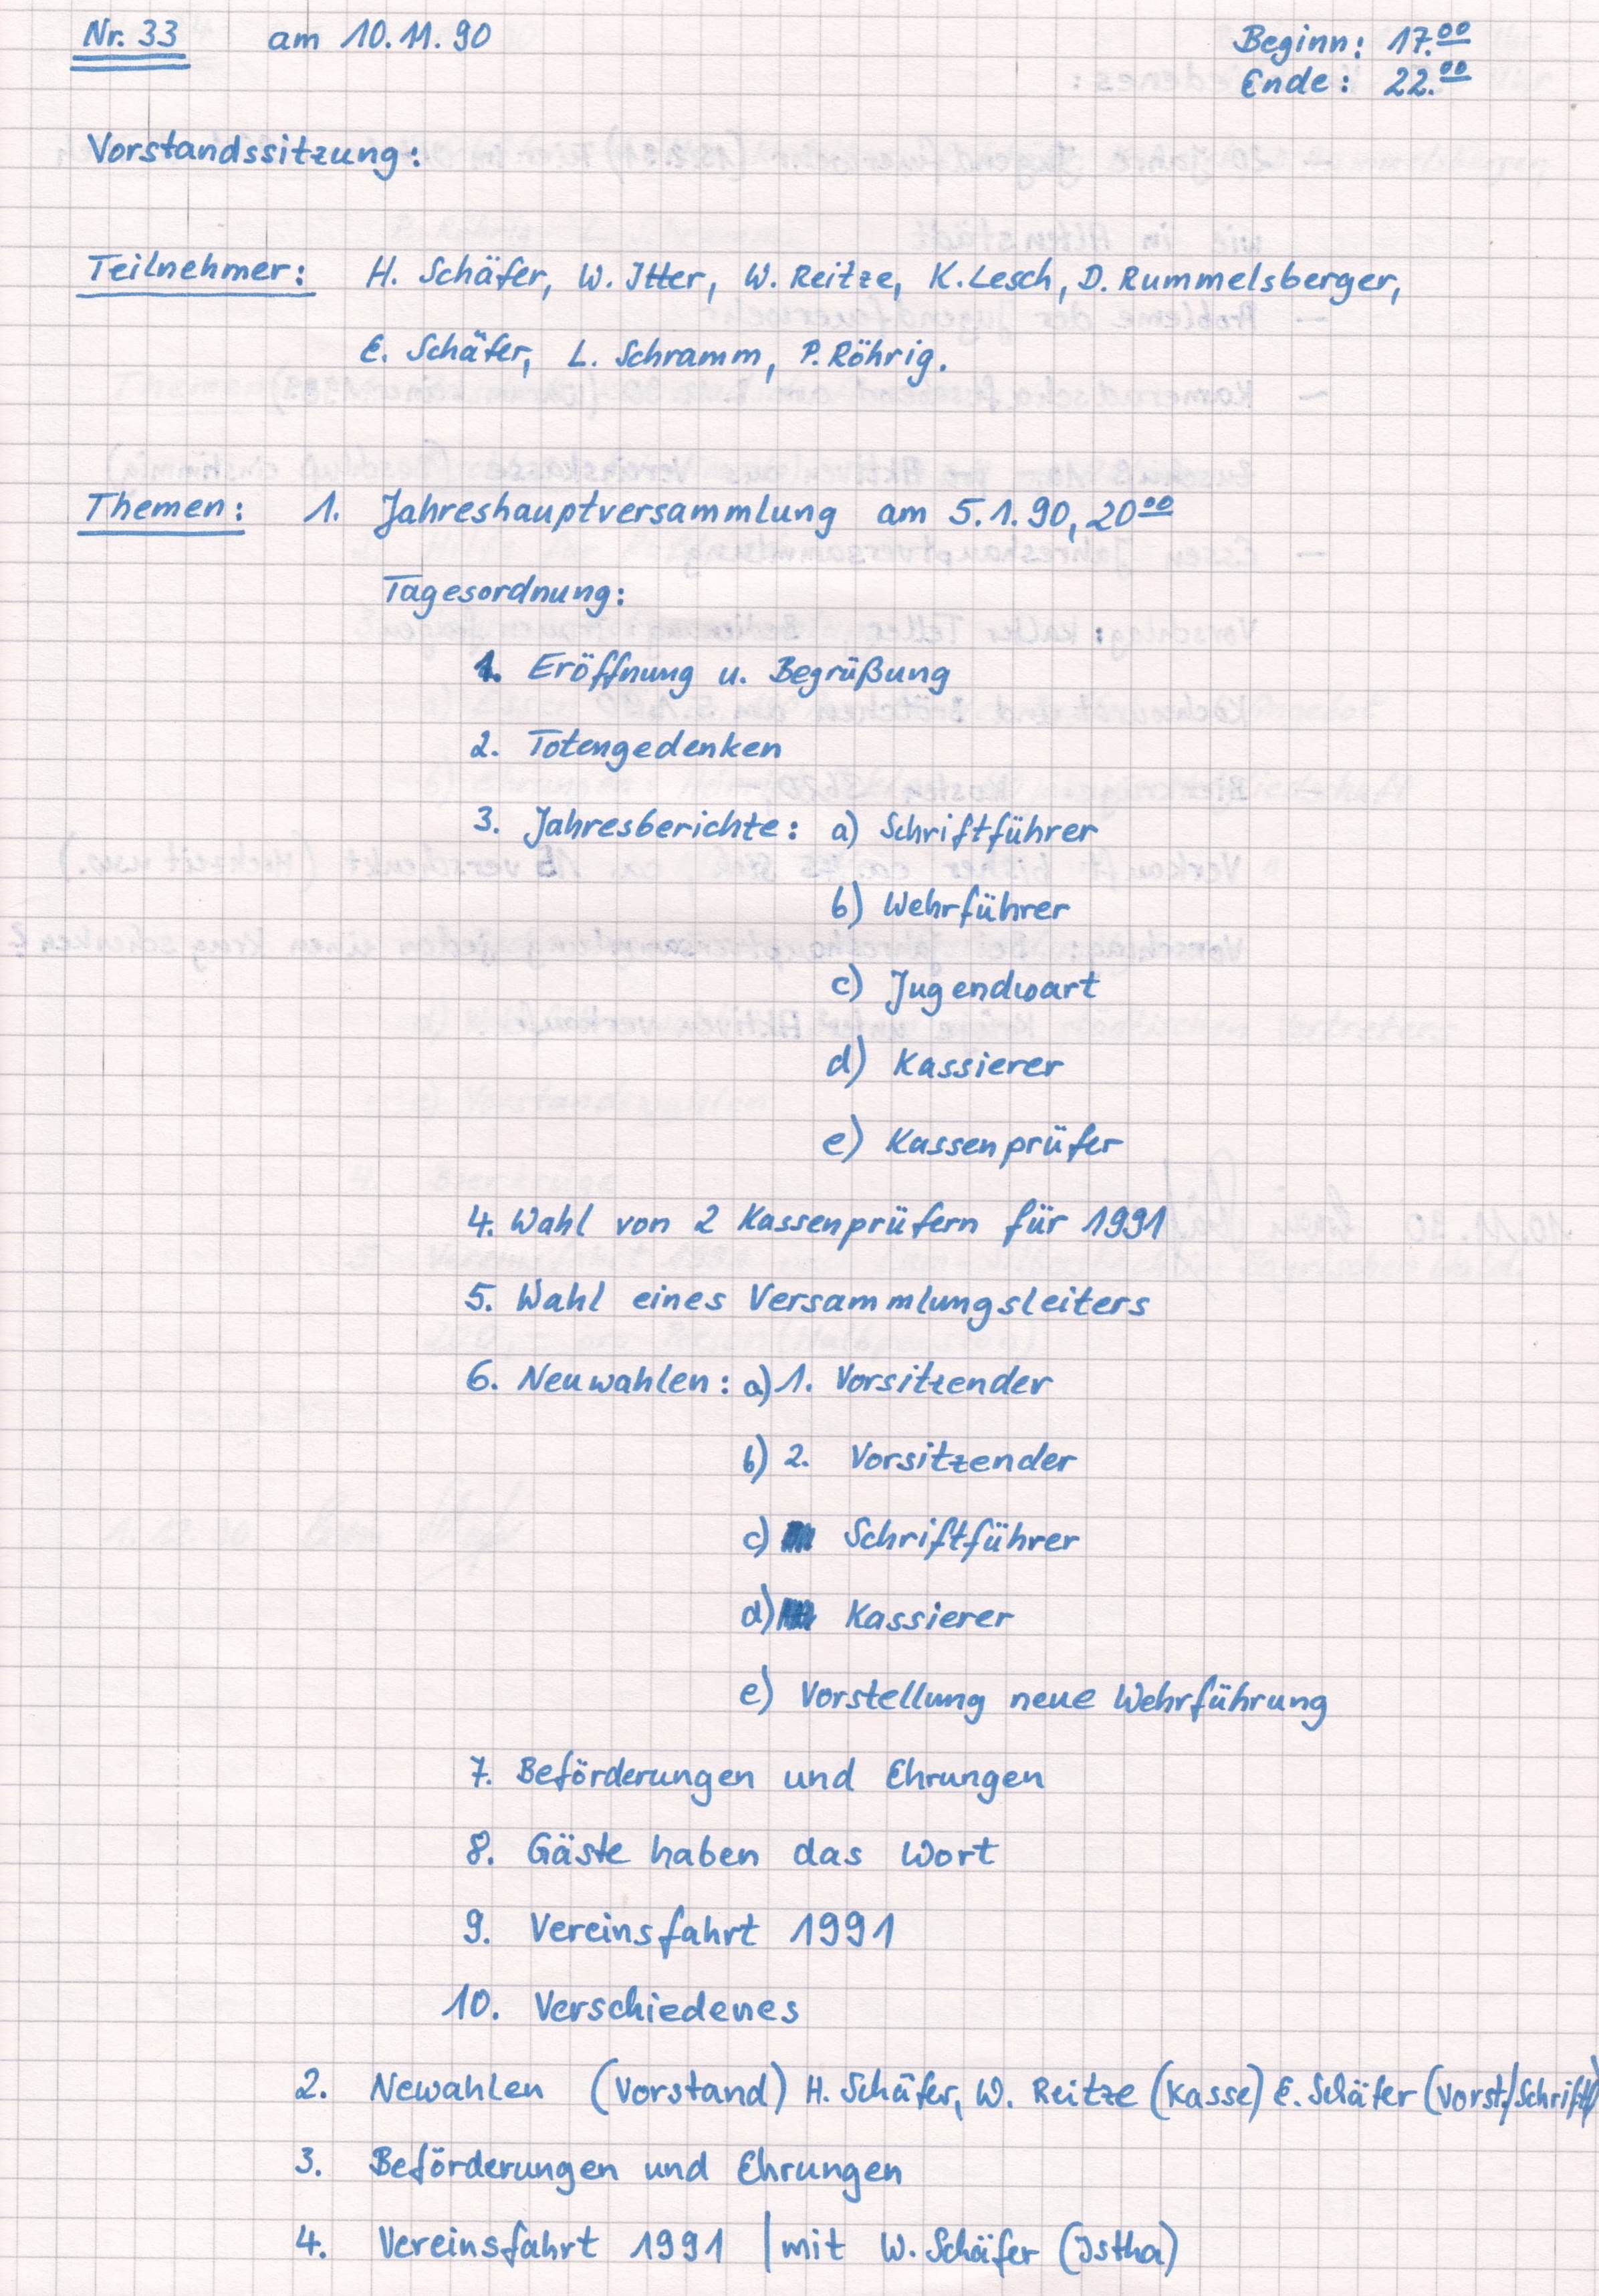 Nr. 33 am 10.11.90 Beginn: 17.00
Ende: 22.00
Vorstandssitzung:
Teilnehmer: H. Schäfer, W. Itter, W. Reitze, K. Lesch, D. Rummelsberger,
E. Schäfer, L. Schramm, P. Röhrig.
Themen: 1. Jahreshauptversammlung am 5.1.90, 20 00
Tagesordnung:
1. Eröffnung u. Begrüßung
2. Totengedenken
3. Jahresberichte: a) Schriftführer
b) Wehrführer
c) Jugendwart
d) Kassierer
e) Kassenprüfer
4. Wahl von 2 Kassenprüfern für 1991
5. Wahl eines Versammlungsleiters
6. Neuwahlen: a) 1. Vorsitzender
b) 2. Vorsitzender
c) Schriftführer
d) Kassierer
e) Vorstellung neue Wehrführung
7. Beförderungen und Ehrungen
8. Gäste haben das Wort
9. Vereinsfahrt 1991
10. Verschiedenes
2. Newahlen (Vorstand) H. Schäfer, W. Reitze (Kasse) E. Schäfer (Vorst./Schrift)
3. Beförderungen und Ehrungen
4. Vereinsfahrt 1991 | mit W. Schäfer (Istha)